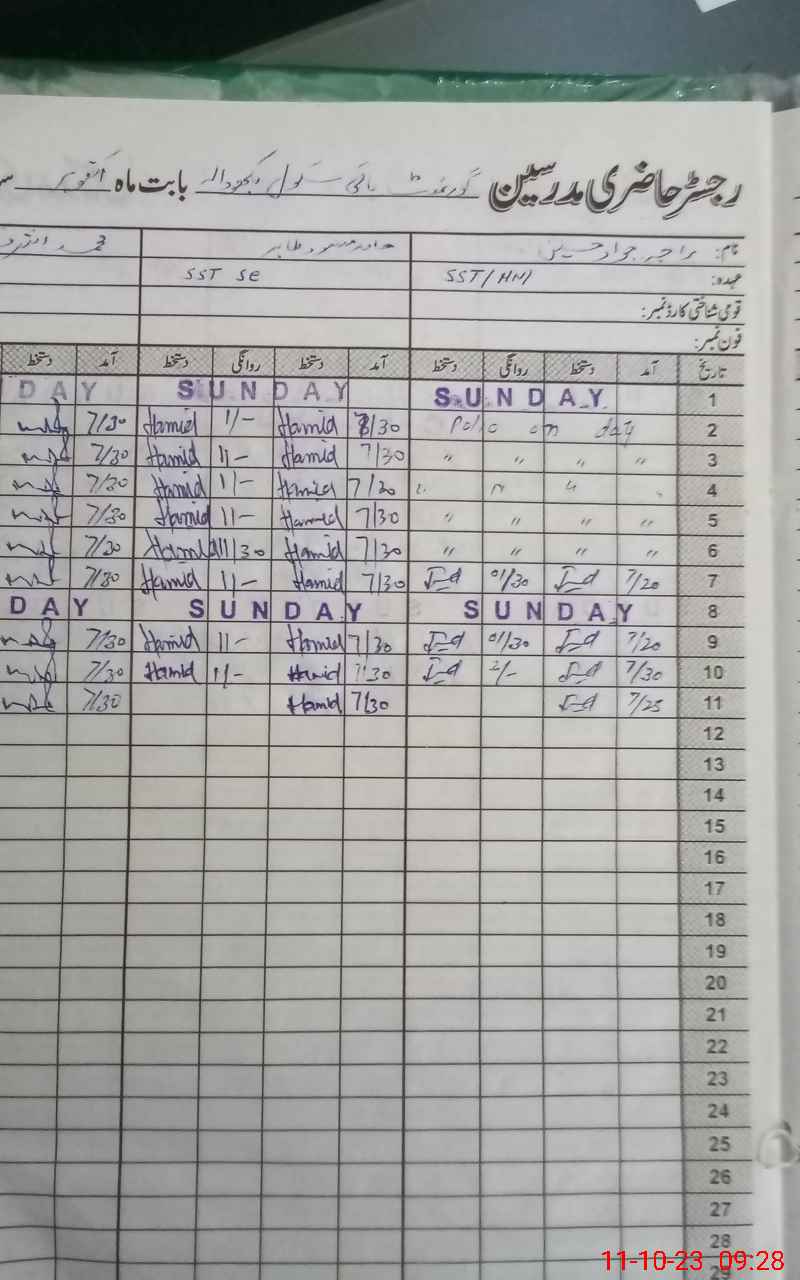 رجسٹر حاضری مدرسین گورنمنٹ ہائی سکول بابت ماہ اکتوبر
نام: راجہ جواد حسین حامد مسعود طاہر محمد
عہدہ: SST/HM SST SE
قومی شناختی کارڈ نمبر:
فون نمبر:
تاریخ آمد دستخط روانگی دستخط آمد دستخط روانگی دستخط آمد دستخط
1 SUNDAY SUNDAY DAY
2 Polio on day 8/30 Hamid 1/- Hamid 7/30
3 " " " " 7/30 Hamid 11/- Hamid 7/30
4 " " 7/20 Hamid 1/- Hamid 7/30
5 " " " " 7/30 Hamid 11/- Hamid 7/30
6 " " " " 7/30 Hamid 11/30 Hamid 7/20
7 7/20 01/30 7/30 Hamid 11/- Hamid 7/30
8 SUNDAY SUNDAY DAY
9 7/20 01/30 7/30 Hamid 11/- Hamid 7/30
10 7/30 2/- 7/30 Hamid 11/- Hamid 7/30
11 7/25 7/30 Hamid 7/30
12
13
14
15
16
17
18
19
20
21
22
23
24
25
26
27
28
29
11-10-23 09:28